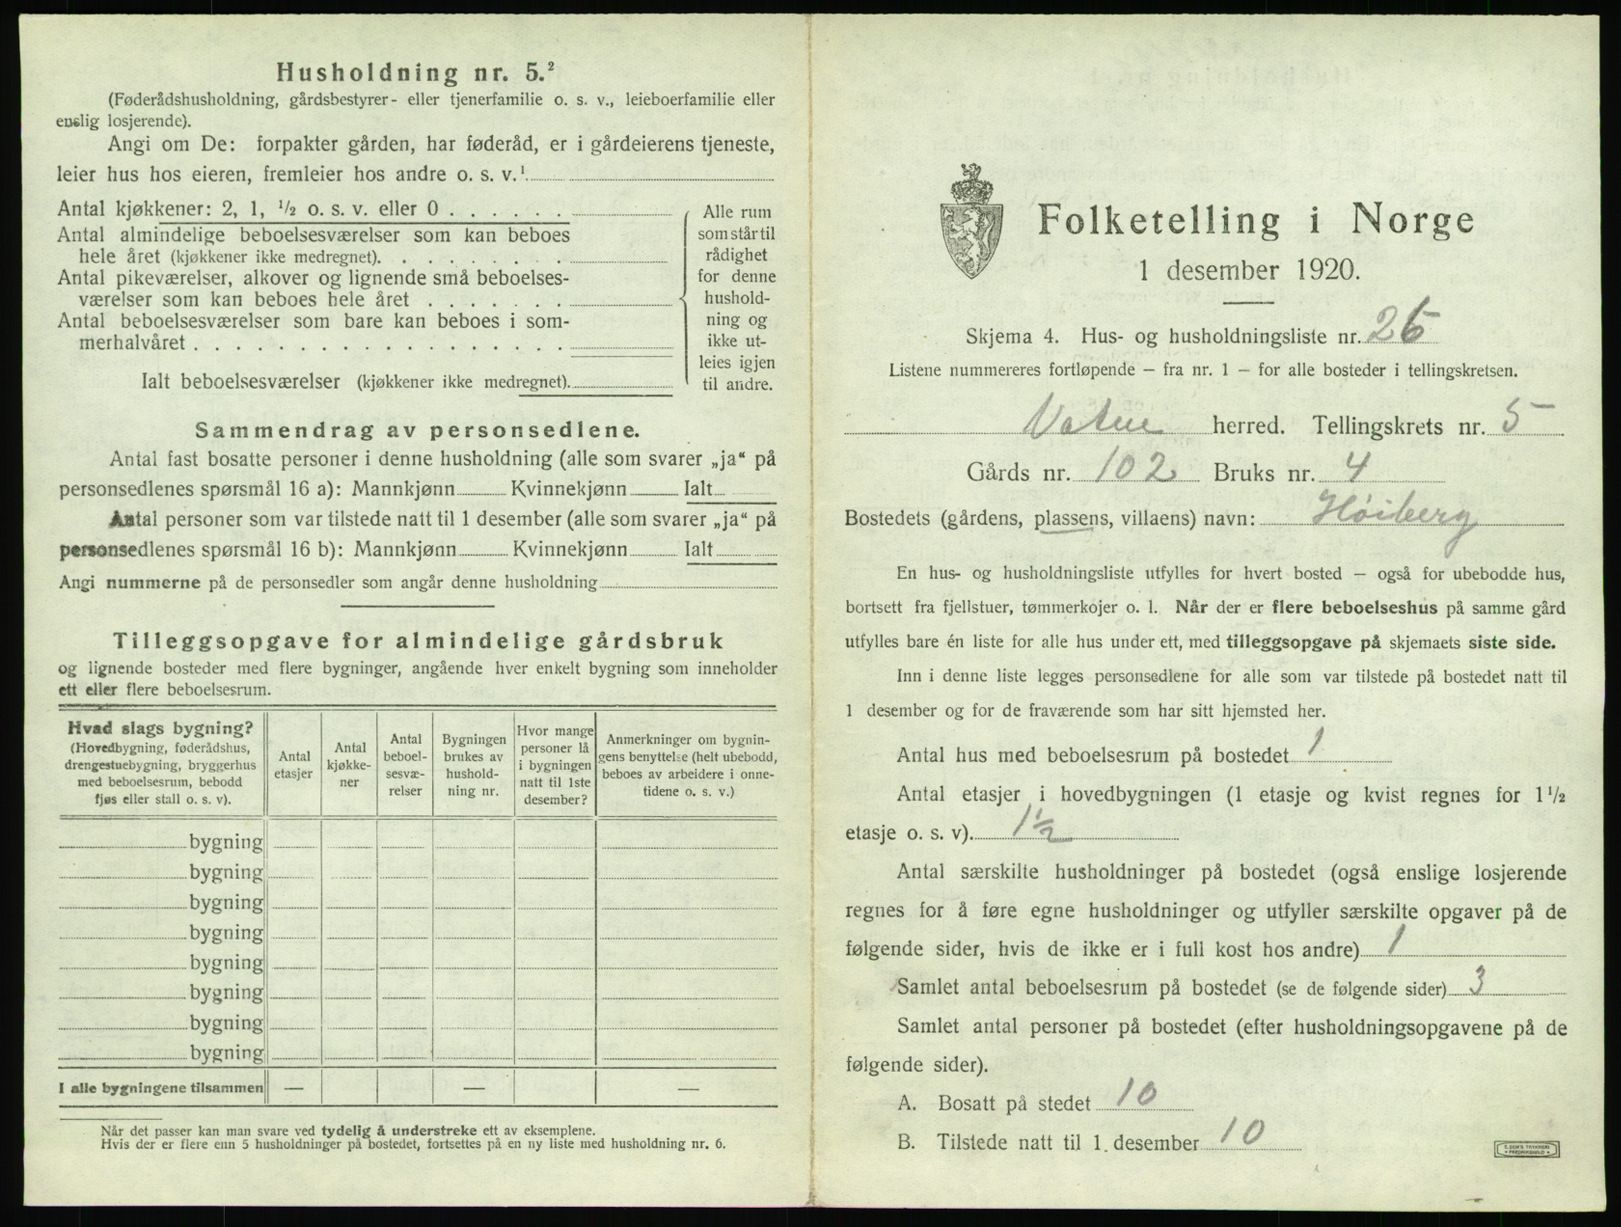 Husholdning nr. 5.²
(Føderådshusholdning, gårdsbestyrer- eller tjenerfamilie o. s. v., leieboerfamilie eller
enslig losjerende).
Angi om De: forpakter gården, har føderåd, er i gårdeierens tjeneste,
leier hus hos eieren, fremleier hos andre o. s. v.¹
Antal kjøkkener: 2, 1, ½ o. s. v. eller 0 . . . . . .
Antal almindelige beboelsesværelser som kan beboes
hele året (kjøkkener ikke medregnet). . . . . . . . .
Antal pikeværelser, alkover og lignende små beboelses-
værelser som kan beboes hele året . . . . . . .
Antal beboelsesværelser som bare kan beboes i som-
merhalvåret . . . . . . . . . . . . . . . . . .
Ialt beboelsesværelser (kjøkkener ikke medregnet).
Alle rum
som står til
rådighet
for denne
hushold-
ning og
ikke ut-
leies igjen
til andre.
Sammendrag av personsedlene.
Antal fast bosatte personer i denne husholdning (alle som svarer „ja“ på
personsedlenes spørsmål 16 a): Mannkjønn Kvinnekjønn Ialt
Antal personer som var tilstede natt til 1 desember (alle som svarer „ja“ på
personsedlenes spørsmål 16 b): Mannkjønn Kvinnekjønn Ialt
Angi nummerne på de personsedler som angår denne husholdning
Tilleggsopgave for almindelige gårdsbruk
og lignende bosteder med flere bygninger, angående hver enkelt bygning som inneholder
ett eller flere beboelsesrum.
Hvad slags bygning?
(Hovedbygning, føderådshus,
drengestuebygning, bryggerhus
med beboelsesrum, bebodd
fjøs eller stall o. s. v).
Antal
etasjer
Antal
kjøkke-
ner
Antal
beboel-
sesvæ-
relser
Bygningen
brukes av
hushold-
ning nr.
Hvor mange
personer lå
i bygningen
natt til 1ste
desember?
Anmerkninger om bygnin-
gens benyttelse (helt ubebodd,
beboes av arbeidere i onne-
tidene o. s. v.)
bygning
bygning
bygning
bygning
bygning
bygning
bygning
bygning
I alle bygningene tilsammen — — —
Når det passer kan man svare ved tydelig å understreke ett av eksemplene.
Hvis der er flere enn 5 husholdninger på bostedet, fortsettes på en ny liste med husholdning nr. 6.
Folketelling i Norge
1 desember 1920.
Skjema 4. Hus- og husholdningsliste nr. 26
Listene nummereres fortløpende – fra nr. 1 – for alle bosteder i tellingskretsen.
Vatne herred. Tellingskrets nr. 5
Gårds nr. 102 Bruks nr. 4
Bostedets (gårdens, plassens, villaens) navn: Høiberg
En hus- og husholdningsliste utfylles for hvert bosted – også for ubebodde hus,
bortsett fra fjellstuer, tømmerkojer o. l. Når der er flere beboelseshus på samme gård
utfylles bare én liste for alle hus under ett, med tilleggsopgave på skjemaets siste side.
Inn i denne liste legges personsedlene for alle som var tilstede på bostedet natt til
1 desember og for de fraværende som har sitt hjemsted her.
Antal hus med beboelsesrum på bostedet 1
Antal etasjer i hovedbygningen (1 etasje og kvist regnes for 1½
etasje o. s. v). 1½
Antal særskilte husholdninger på bostedet (også enslige losjerende
regnes for å føre egne husholdninger og utfyller særskilte opgaver på de
følgende sider, hvis de ikke er i full kost hos andre) 1
Samlet antal beboelsesrum på bostedet (se de følgende sider) 3
Samlet antal personer på bostedet (efter husholdningsopgavene på de
følgende sider).
A. Bosatt på stedet 10
B. Tilstede natt til 1. desember 10